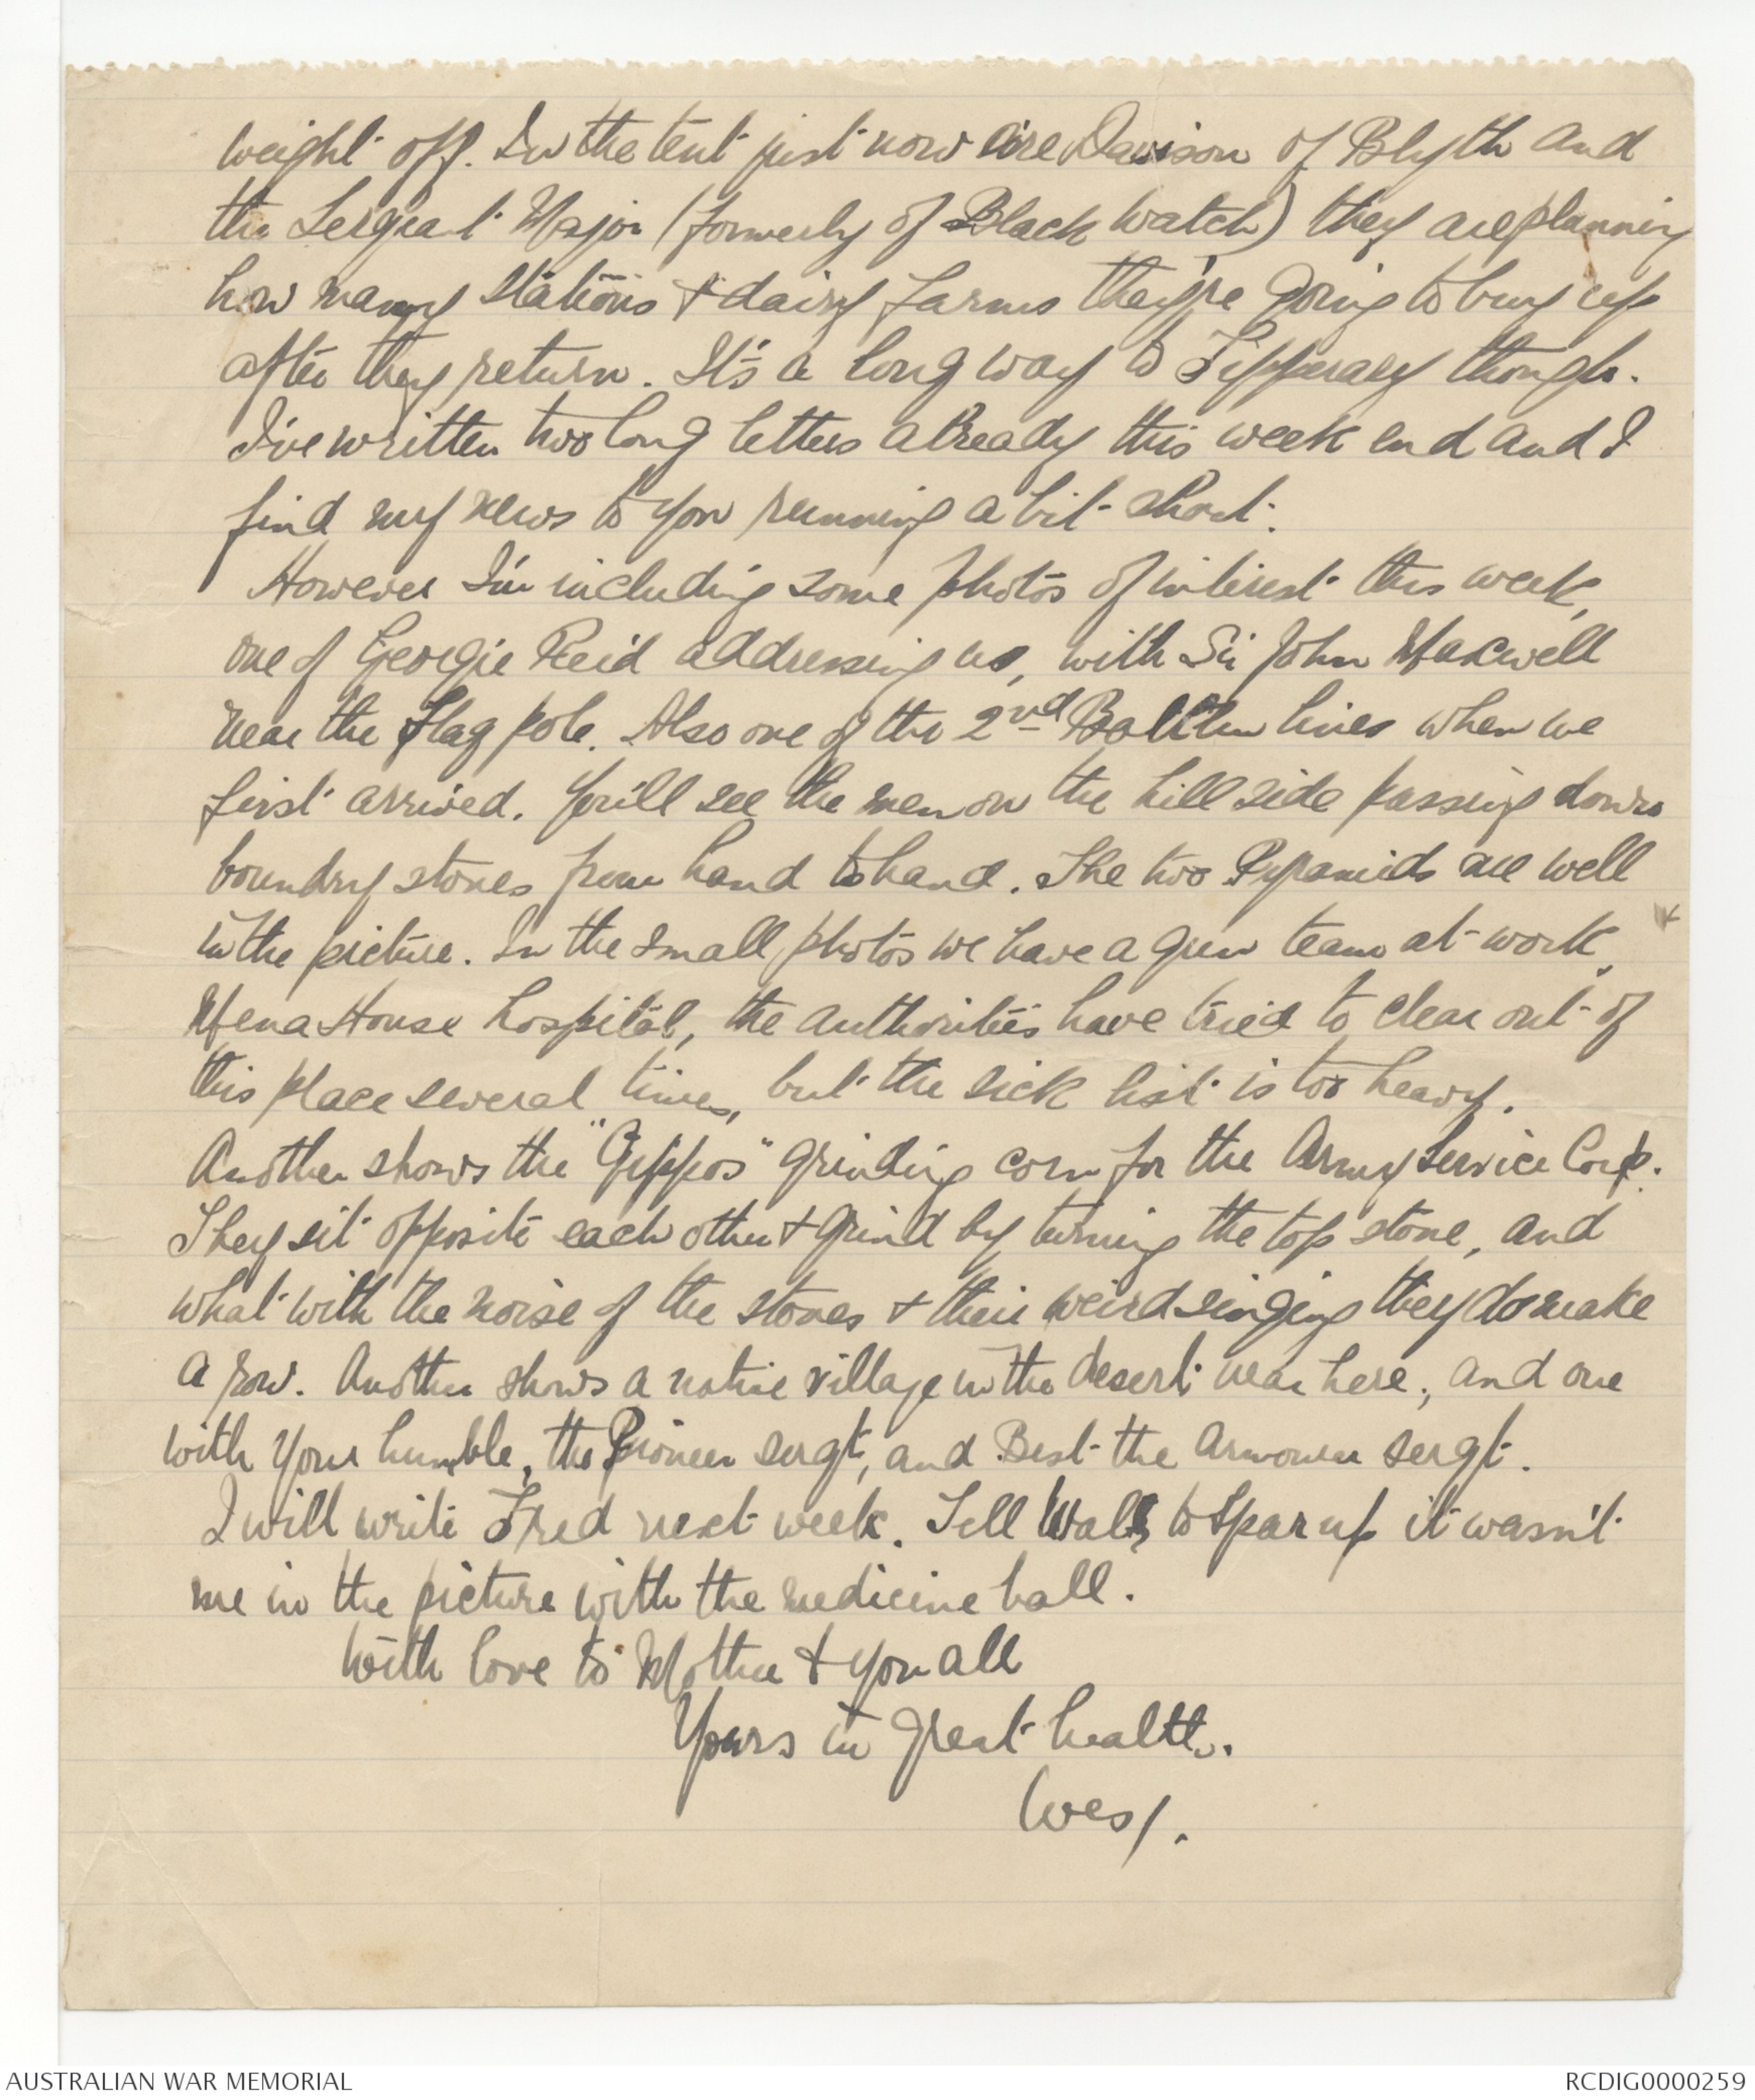 weight off. In the tent just now are Davison of Blyth and
the Sergeant Major (formerly of Black Watch) they are planning
how many stations & dairy farms they're going to buy up
after they return. It's a long way to Tipperary though.
I've written two long letters already this week end and I
find my news to you running a bit short.
However I'm including some photos of interest this week,
one of Georgie Reid addressing us, with Sir John Maxwell
near the flag pole. Also one of the 2nd Battln lines when we
first arrived. You'll see the men on the hill side passing down
boundry stones from hand to hand. The two Pyramids are well
in the picture. In the small photos we have a gun team at work,
Mena House hospital, the authorities have tried to clear out of
this place several times, but the sick list is too heavy.
Another shows the "Gippos" grinding corn for the Army Service Corp.
They sit opposite each other & grind by turning the top stone, and
what with the noise of the stones & their weird singing they do make
a row. Another shows a native village in the desert near here, and one
with your humble, the Pioneer sergt, and Best the Armourer sergt.
I will write Fred next week. Tell Wally to spar up it wasn't
me in the picture with the medicine ball.
With love to Mother & you all
Yours in great health.
Wes/.
AUSTRALIAN WAR MEMORIAL
RCDIG0000259